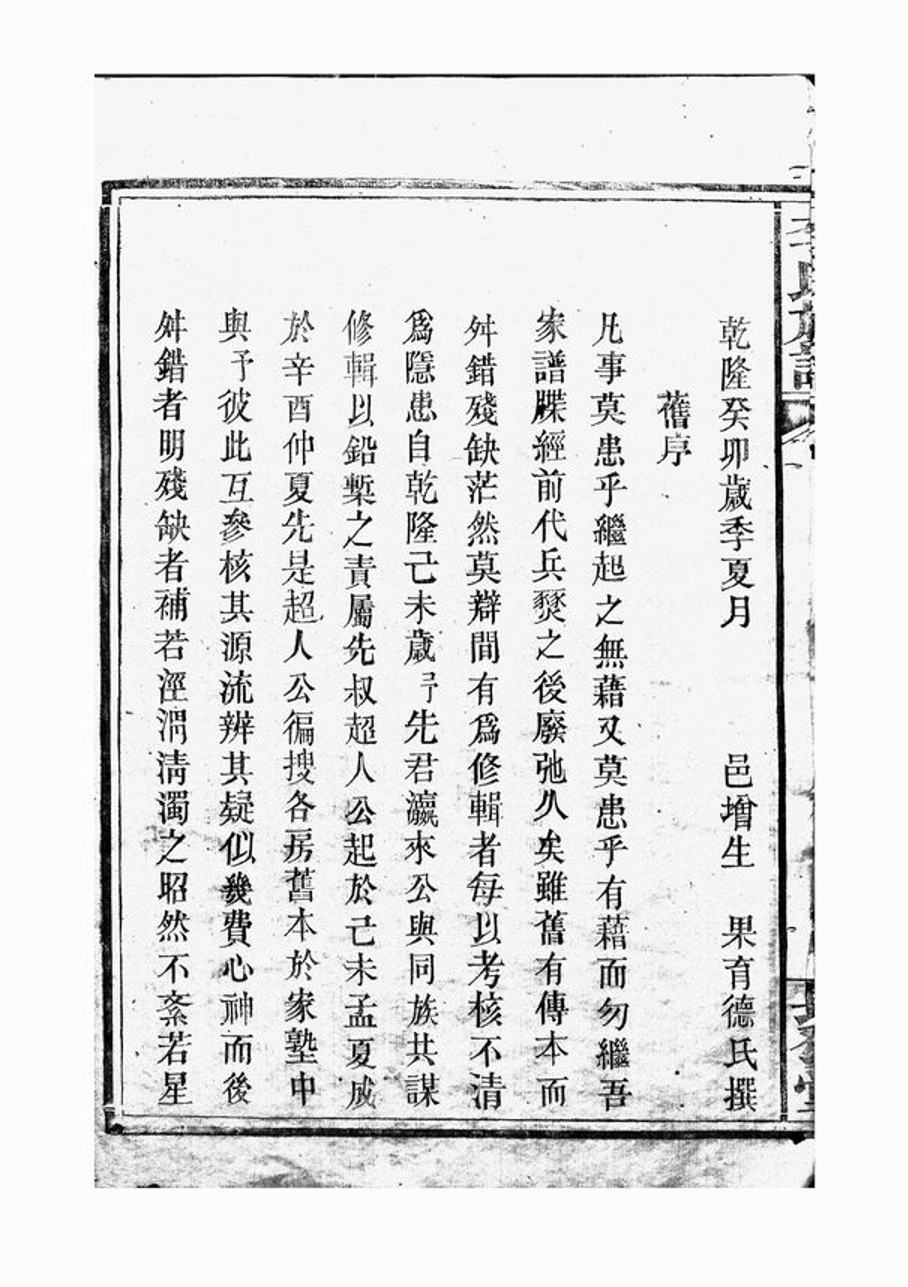 乾隆癸卯歲季夏月 邑增生 果育德氏撰
舊序
凡事莫患乎繼起之無藉又莫患乎有藉而勿繼吾
家譜牒經前代兵燹之後廢弛久矣雖舊有傳本而
舛錯殘缺茫然莫辯間有爲修輯者每以考核不清
爲隱患自乾隆己未歲予先君瀛來公與同族共謀
修輯以鉛槧之責屬先叔超人公起於己未孟夏成
於辛酉仲夏先是超人公徧搜各房舊本於家塾中
與予彼此互參核其源流辨其疑似幾費心神而後
舛錯者明殘缺者補若涇渭清濁之昭然不紊若星